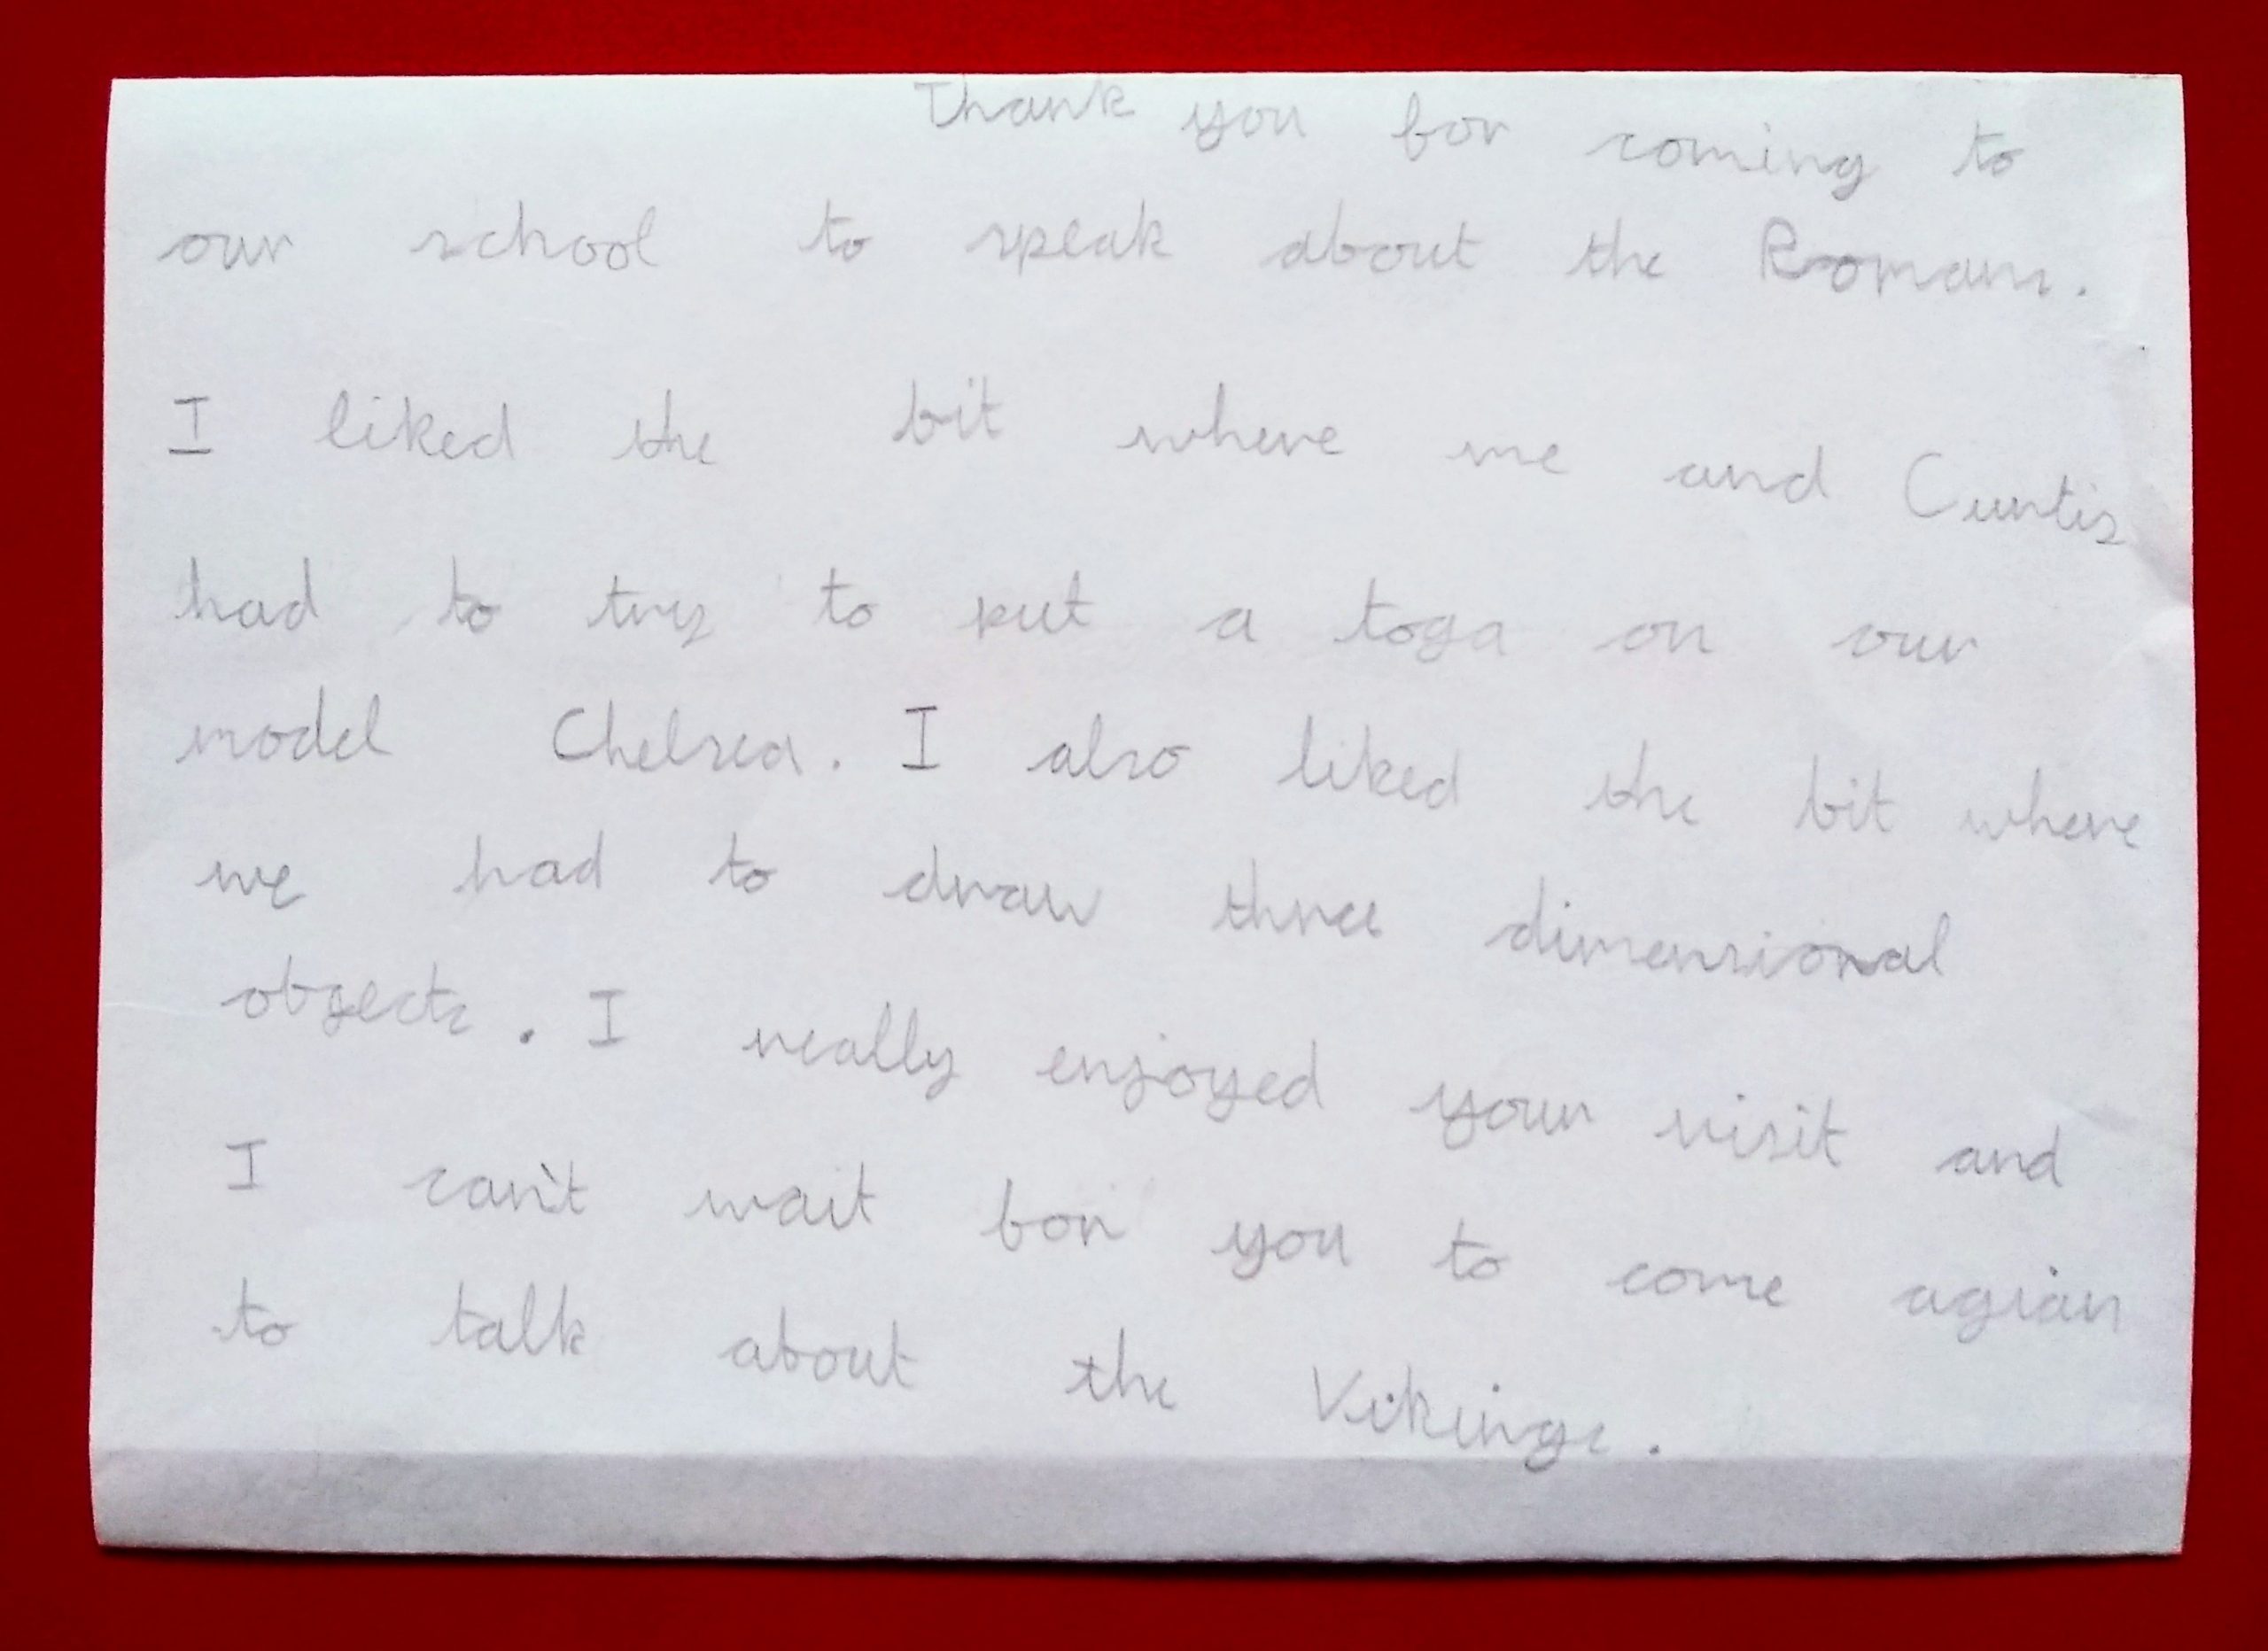 Thank you for coming to
our school to speak about the Romans.
I liked the bit where me and Curtis
had to try to put a toga on our
model Chelsea. I also liked the bit where
we had to draw three dimensional
objects. I really enjoyed your visit and
I can't wait for you to come agian
to talk about the Vikings.